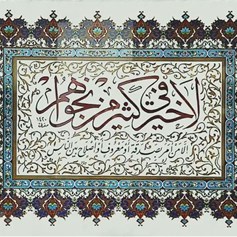 لا خير في كثير من نجواهم
إلا من أمر بصدقة أو معروف أو إصلاح بين الناس